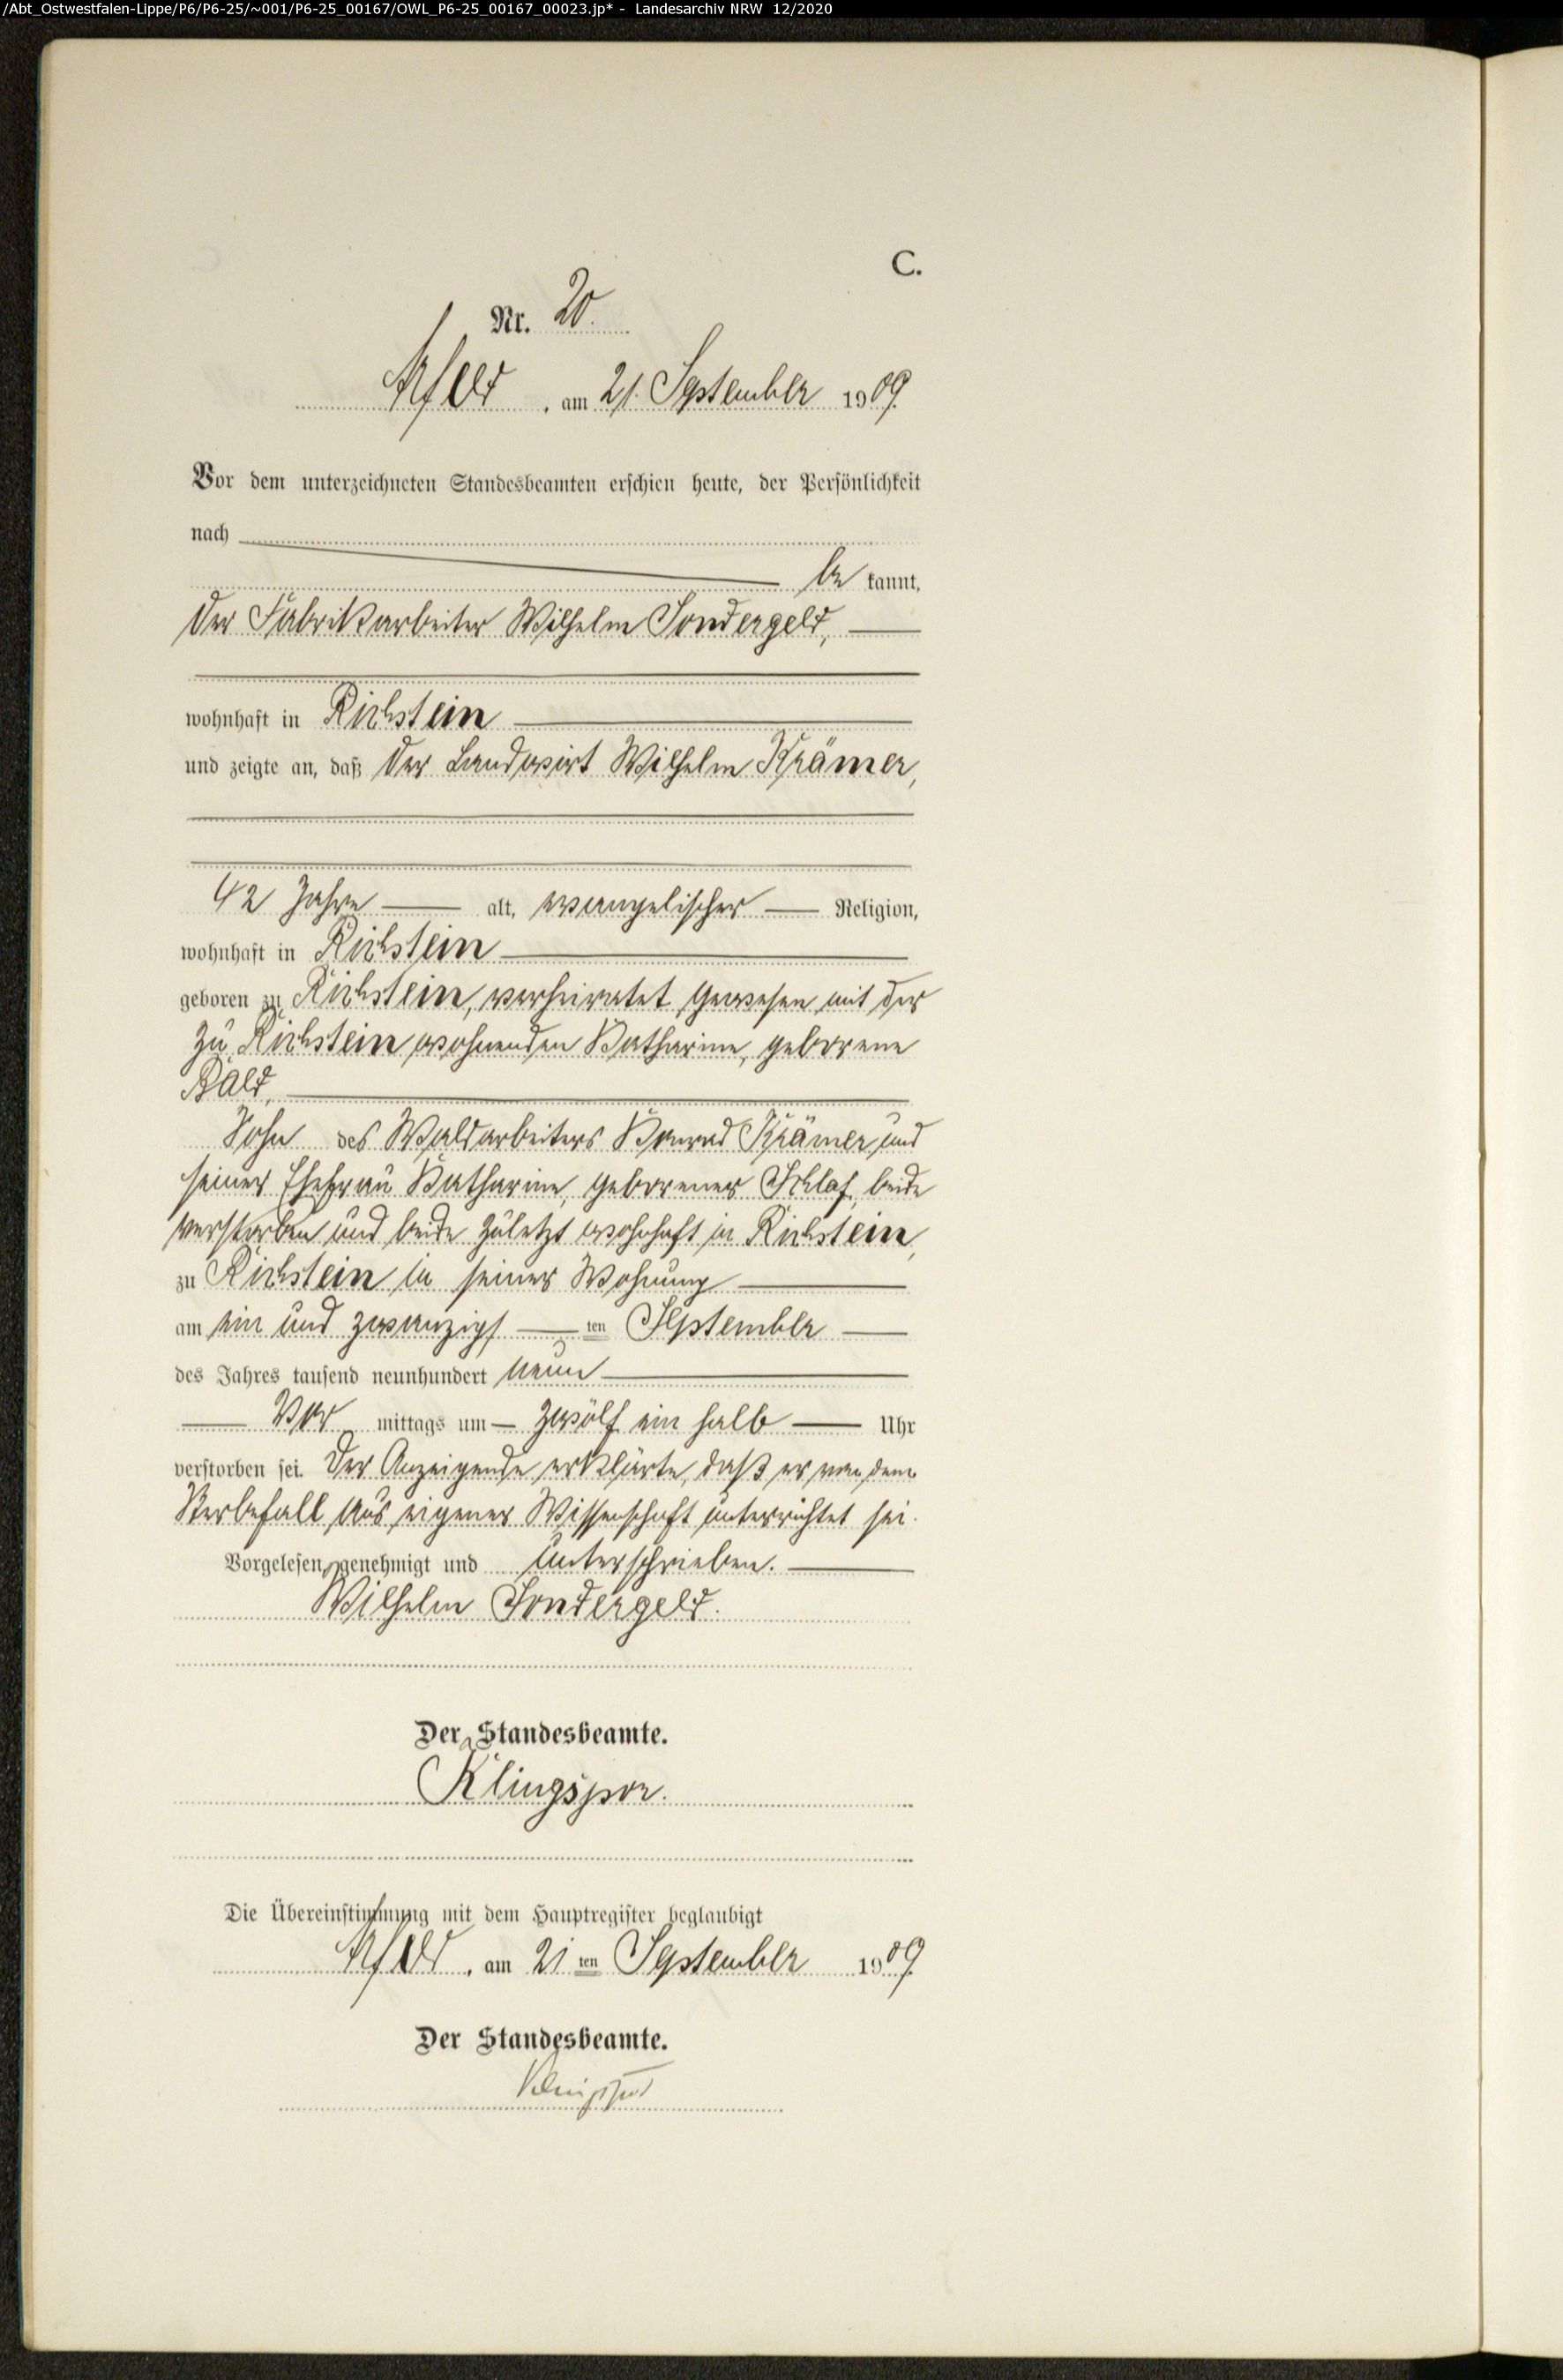 /Abt_Ostwestfalen-Lippe/P6/P6-25/~001/P6-25_00167/OWL_P6-25_00167_00023.jp* - Landesarchiv NRW 12/2020
C.
Nr. 20.
Arfeld, am 21. September 1909.
Vor dem unterzeichneten Standesbeamten erschien heute, der Persönlichkeit
nach
be kannt,
der Fabrikarbeiter Wilhelm Sondergeld,
wohnhaft in Richstein
und zeigte an, daß der Landwirt Wilhelm Krämer,
42 Jahre alt, evangelischer Religion,
wohnhaft in Richstein
geboren zu Richstein, verheiratet gewesen mit der
zu Richstein wohnenden Katharine, geborene
Bald,
Sohn des Waldarbeiters Konrad Krämer und
seiner Ehefrau Katharine, geborener Schlaf, beide
verstorben und beide zuletzt wohnhaft in Richstein,
zu Richstein in seiner Wohnung
am ein und zwanzigs ten September
des Jahres tausend neunhundert neun
Vor mittags um zwölf ein halb Uhr
verstorben sei. Der Anzeigende erklärte, daß er von dem
Sterbefall aus eigener Wissenschaft unterrichtet sei.
Vorgelesen, genehmigt und unterschrieben.
Wilhelm Sondergeld.
Der Standesbeamte.
Klingspor.
Die Übereinstimmung mit dem Hauptregister beglaubigt
Arfeld, am 21 ten September 1909.
Der Standesbeamte.
Klingspor